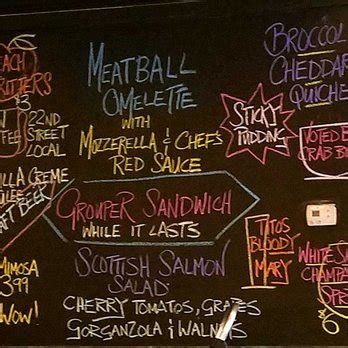 EACH
FRITTERS
$3
22ND
STREET
LOCAL
LLA CREME
AFT BEER
MIMOSA
3.99
WOW!
MEATBALL
OMELETTE
WITH
MOZZERELLA & CHEF'S
RED SAUCE
GROUPER SANDWICH
WHILE IT LASTS
SCOTTISH SALMON
SALAD:
CHERRY TOMATOS, GRAPES
GORGANZOLA & WALNUTS
BROCCOL
CHEDDAR
QUICHE
STICKY
PUDDING
VOTED B
CRAB B
TITOS
BLOODY
MARY
WHITE SA
CHAMPA
SPR